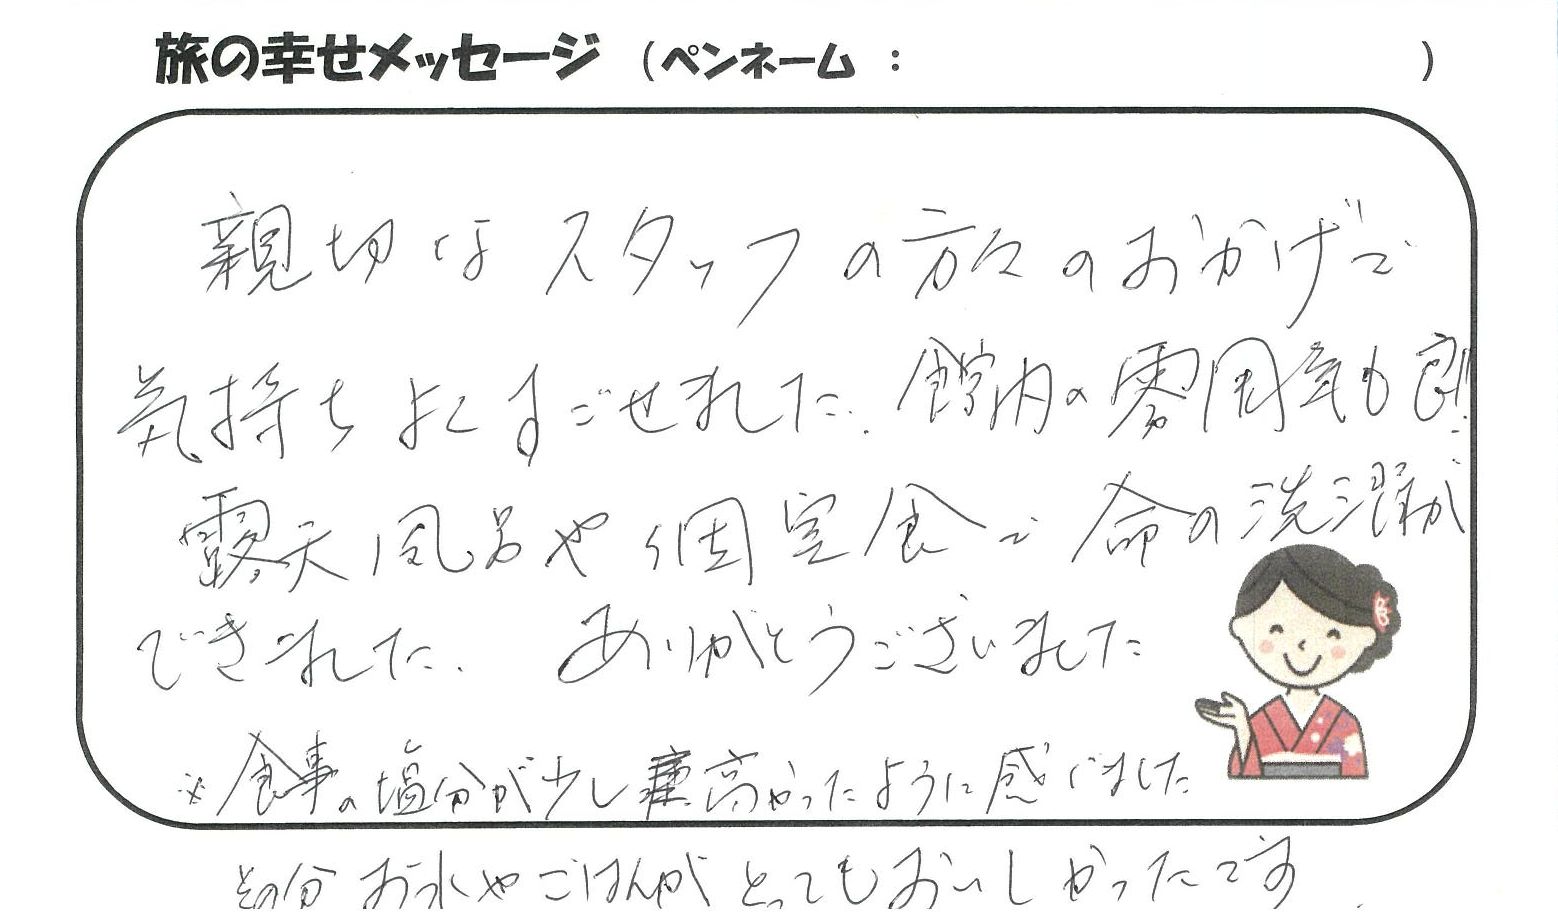 旅の幸せメッセージ (ペンネーム : )
親切なスタッフの方々のおかげで
気持ちよくすごせました. 館内の雰囲気も良!!
露天風呂や個室食で命の洗濯が
できました. ありがとうございました
※食事の塩分が少し高かったように感じました
その分お水やごはんがとってもおいしかったです.